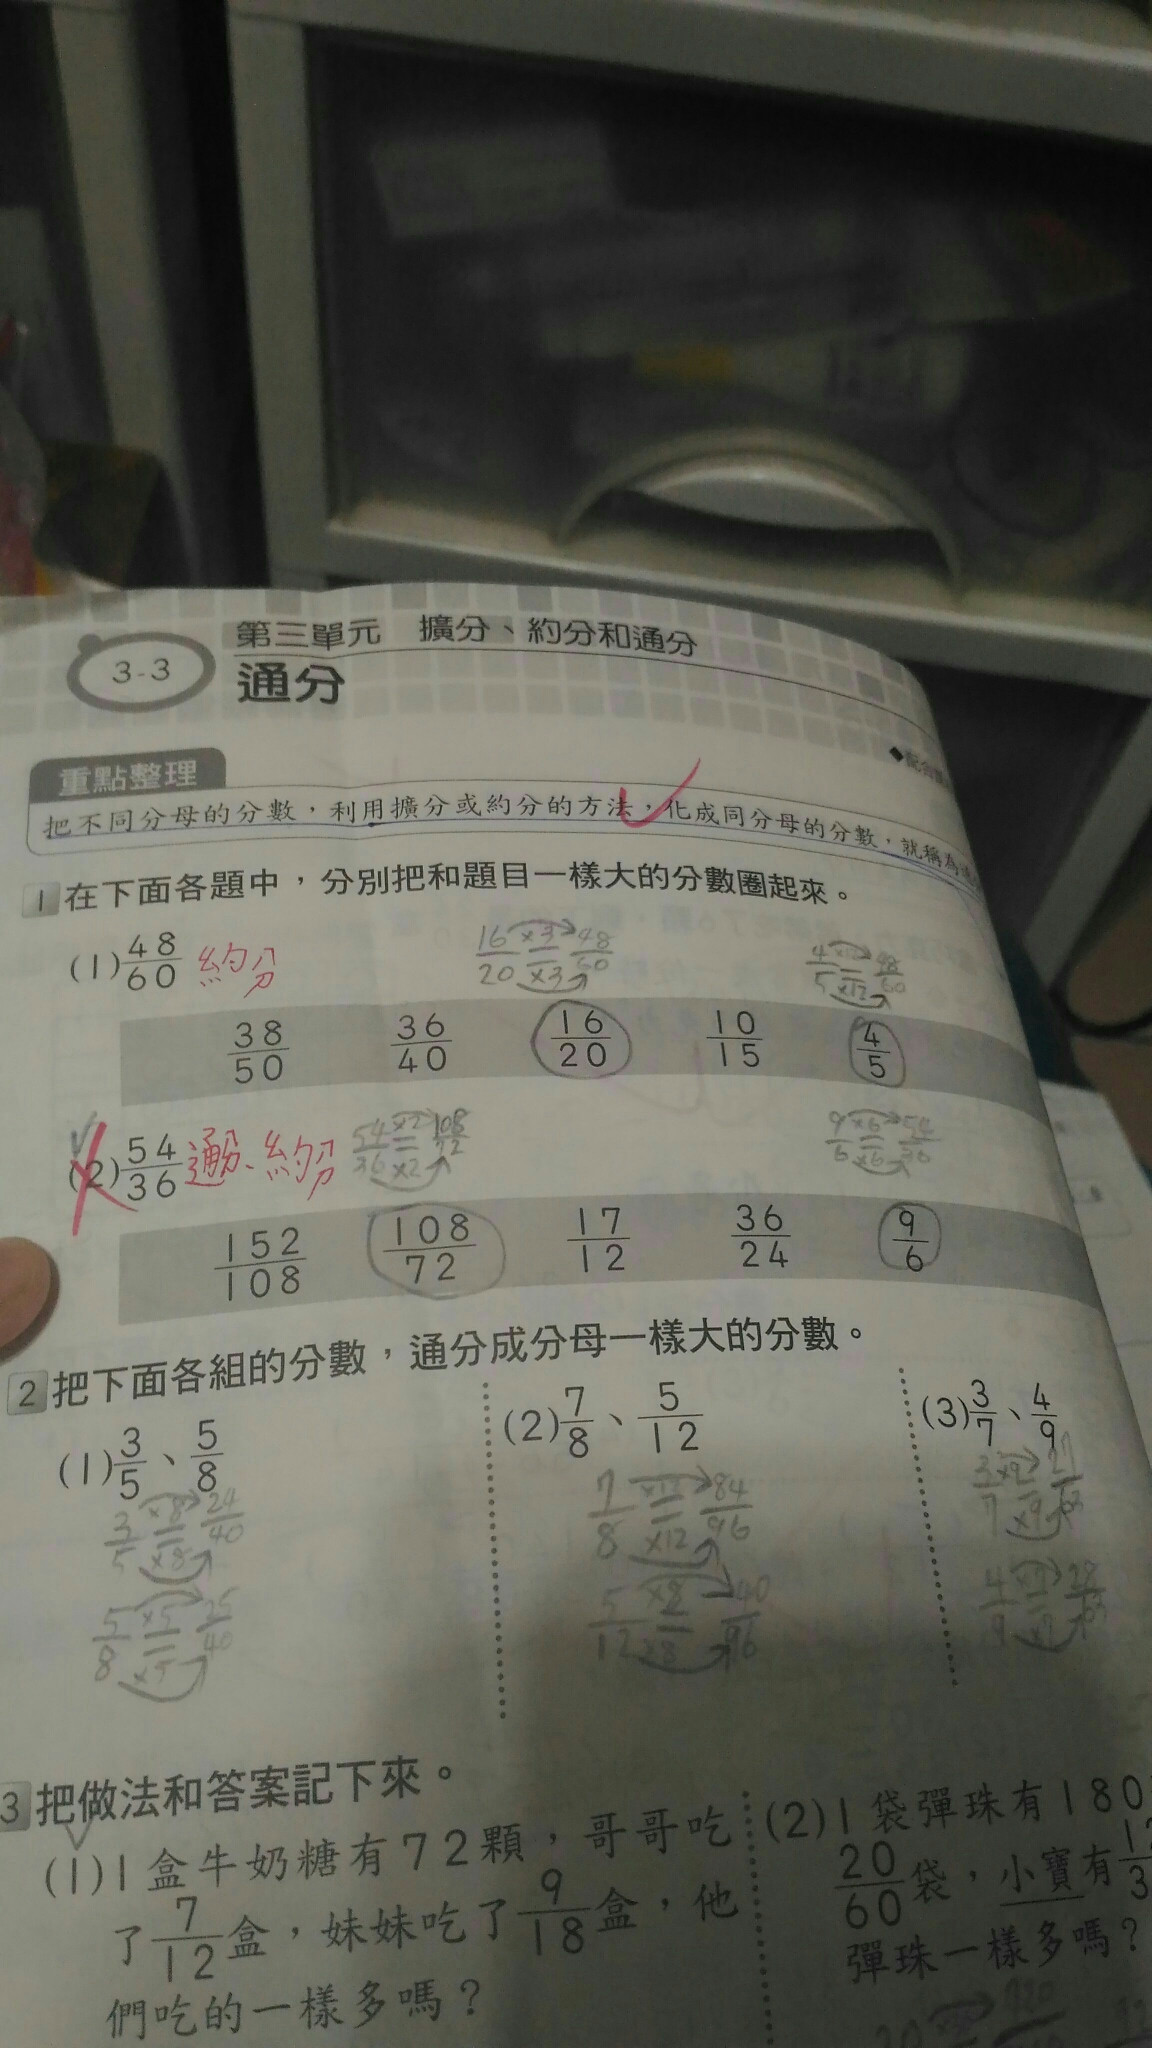 第三單元 擴分、約分和通分
3-3
通分
重點整理
把不同分母的分數,利用擴分或約分的方法,化成同分母的分數,就稱為
1 在下面各題中,分別把和題目一樣大的分數圈起來。
(1) 48/60 約分 16/20 ×3 = ×3 48/60 4/5 ×12 = ×12 48/60
38/50 36/40 16/20 10/15 4/5
(2) 54/36 通分、約分 54/36 ×2 = ×2 108/72 9/6 ×6 = ×6 54/36
152/108 108/72 17/12 36/24 9/6
2 把下面各組的分數,通分成分母一樣大的分數。
(1) 3/5、5/8 (2) 7/8、5/12 (3) 3/7、4/9
3/5 ×8 = ×8 24/40 7/8 ×12 = ×12 84/96 3/7 ×9 = ×9 27/63
5/8 ×5 = ×5 25/40 5/12 ×8 = ×8 40/96 4/9 ×7 = ×7 28/63
3 把做法和答案記下來。
(1) 1盒牛奶糖有72顆,哥哥吃
了7/12盒,妹妹吃了9/18盒,他
們吃的一樣多嗎?
(2) 1袋彈珠有180
20/60袋,小寶有
彈珠一樣多嗎?